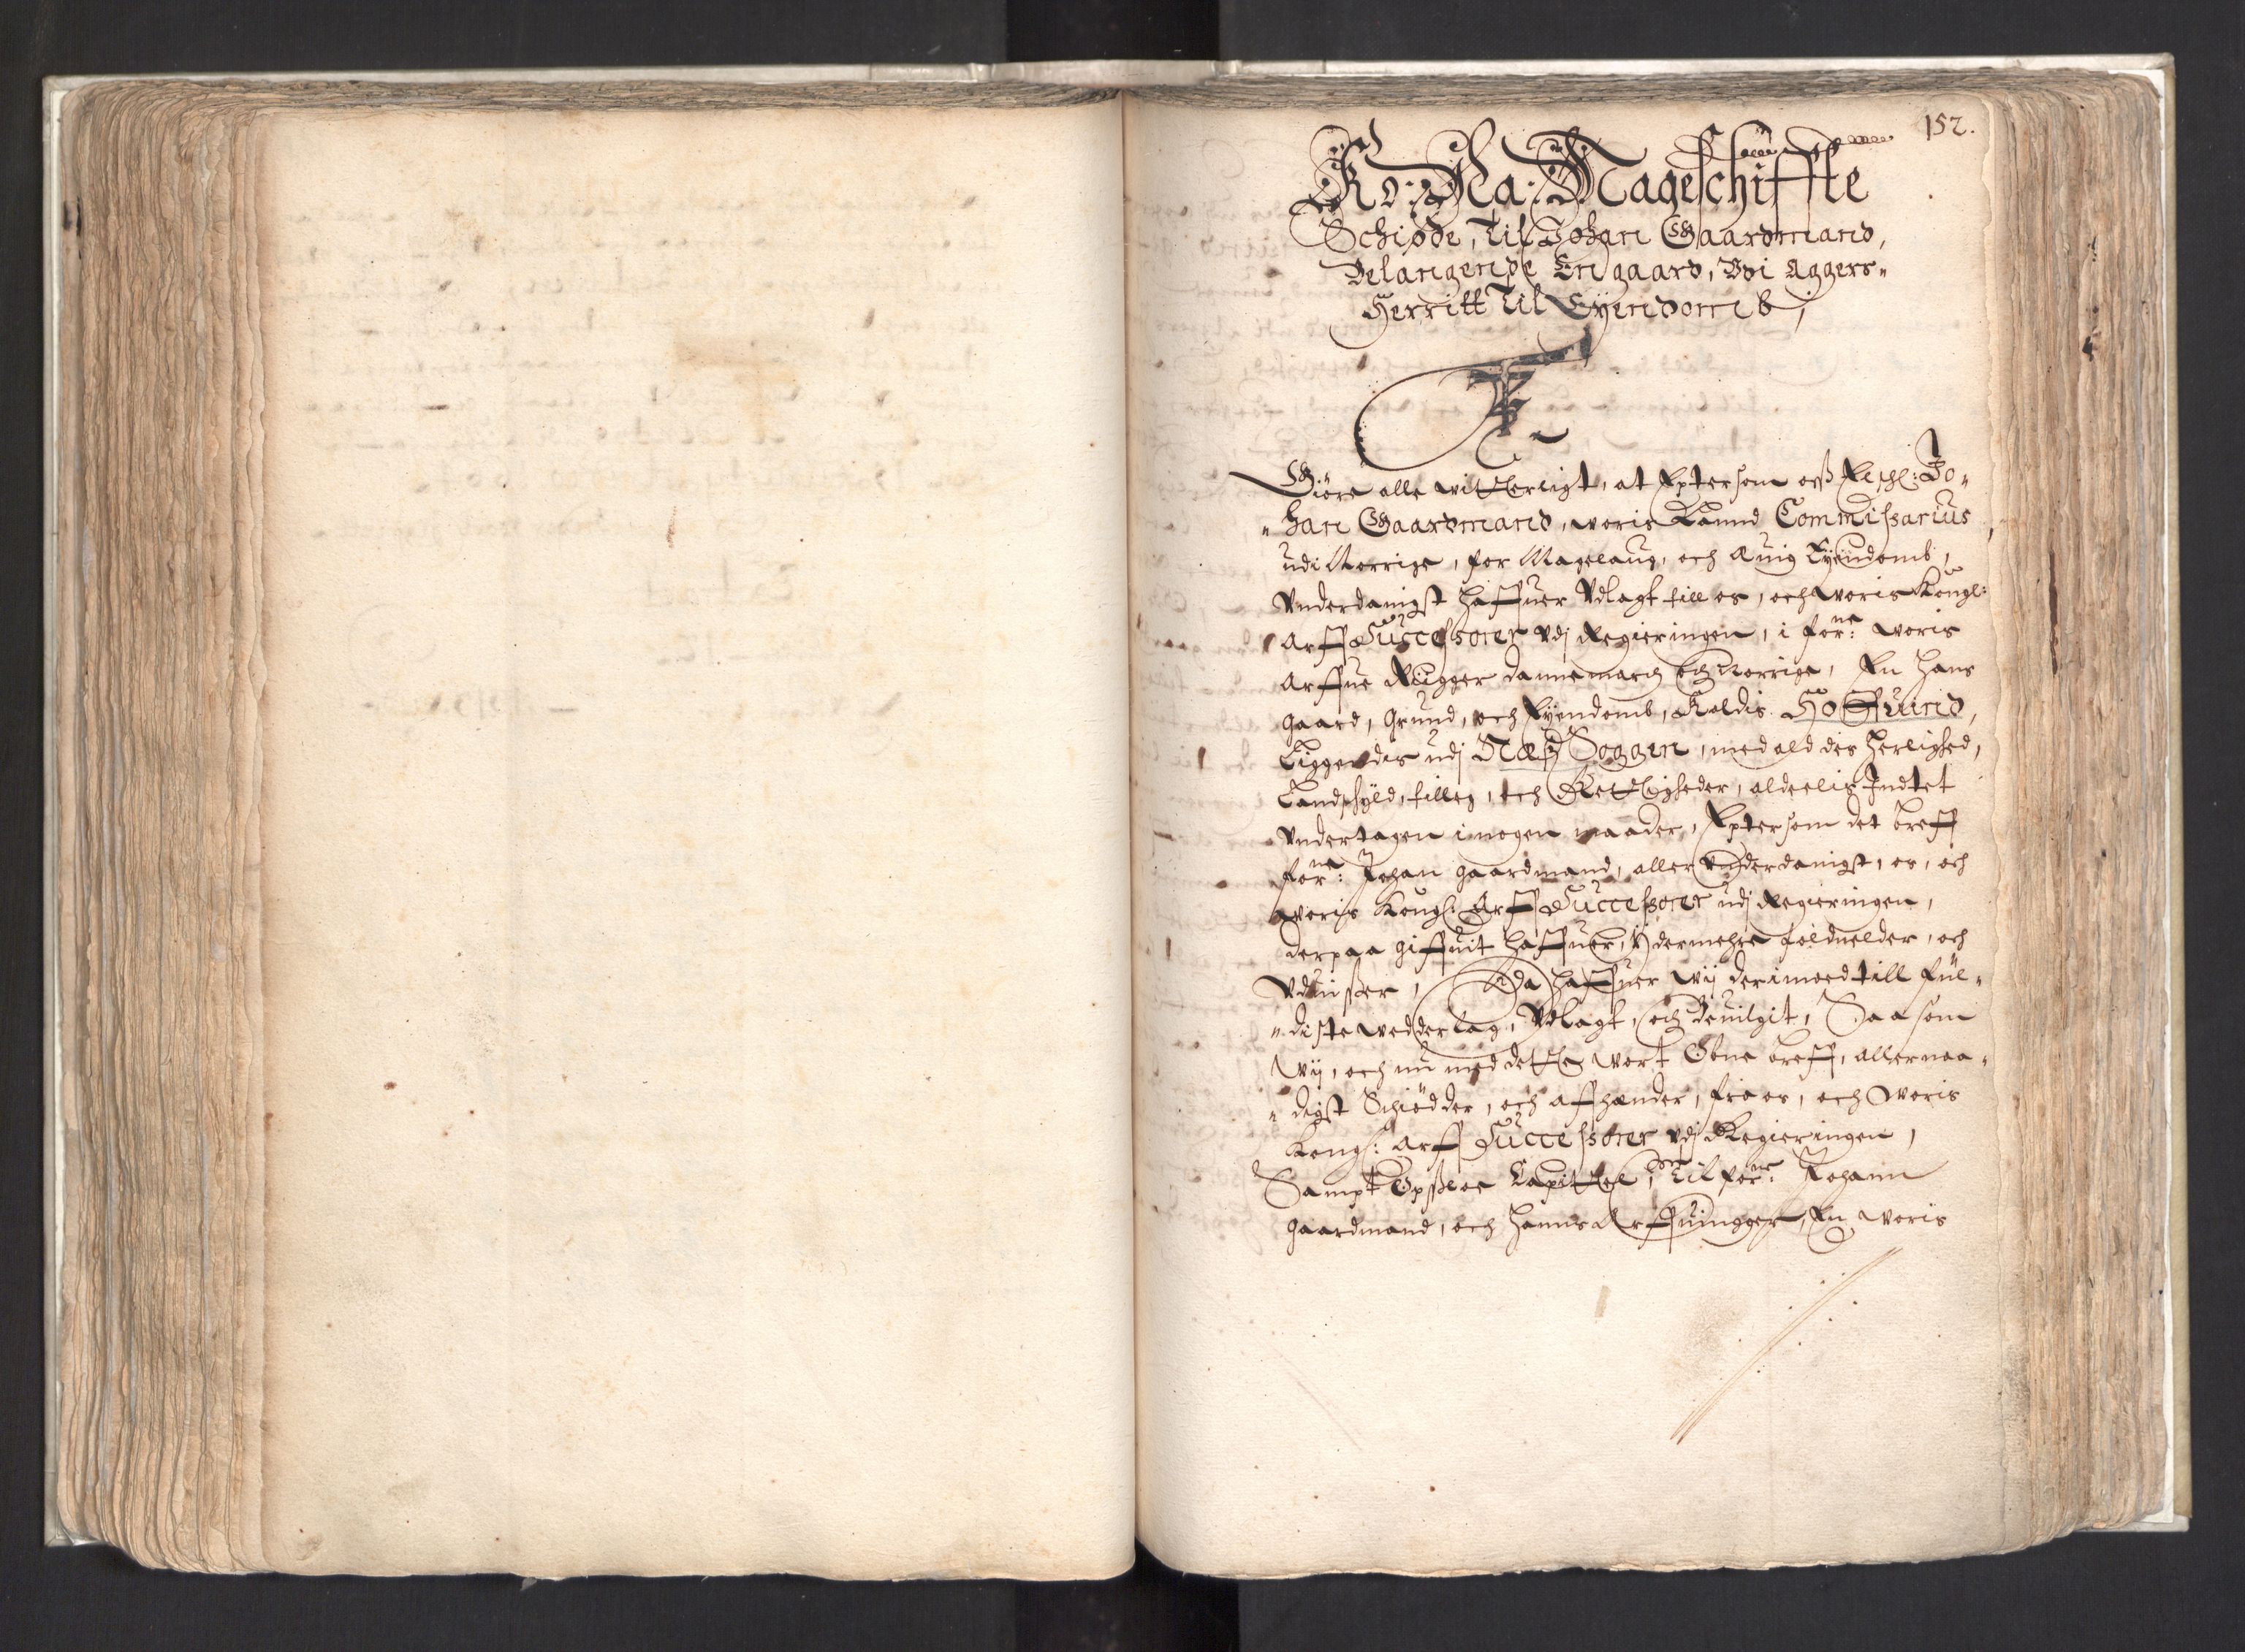 152.
Ko: Ma: Mageschiffte
Schiøde, Til Johan Gaardmand,
Belangende En gaard, Vdi Aggers-
Herritt Til Eyendomb,
F
Giøre alle witterligt, at Epter som oss El: Jo-
-han Gaardmand, woris Kammd Commissarius
udi Norrige, for Magelaug, och Æuig Eyendomb,
Vnderdanigst haffuer Vdlagt till os, och woris Kongl:
Arff Successorer vdj Regieringen, i forne: woris
Arffue Rigger Dannemarch och Norrige, En hans
gaard, Grund, och Eyendomb, Kaldis Hoffuind,
Liggendis udj Næss Soggen, med ald dis herlighed,
Landschyld, tilleg, och Rettigheder, aldeelis Indtet
Vndertagen i nogen maader, Epter som det breff
forne: Johan gaardmand, aller Vnderdanigst, os, och
woris Kongl: Arff Successorer udj Regieringen,
derpaa giffuit haffuer, ydermehre formelder, och
Vduisser, Da haffuer wij derimoed till ful-
-diste wedderlag, Vdlagt, och Beuilgit, Saa som
Wij, och nu med dette wort Obne breff, allernaa-
-digst Schiødder, och affhænder, fra os, och woris
Kongl: Arff Successorer vdj Regieringen,
Sampt Opsloe Capittel, Til forne: Johann
gaardmand, och hanns Arffuingger, En woris